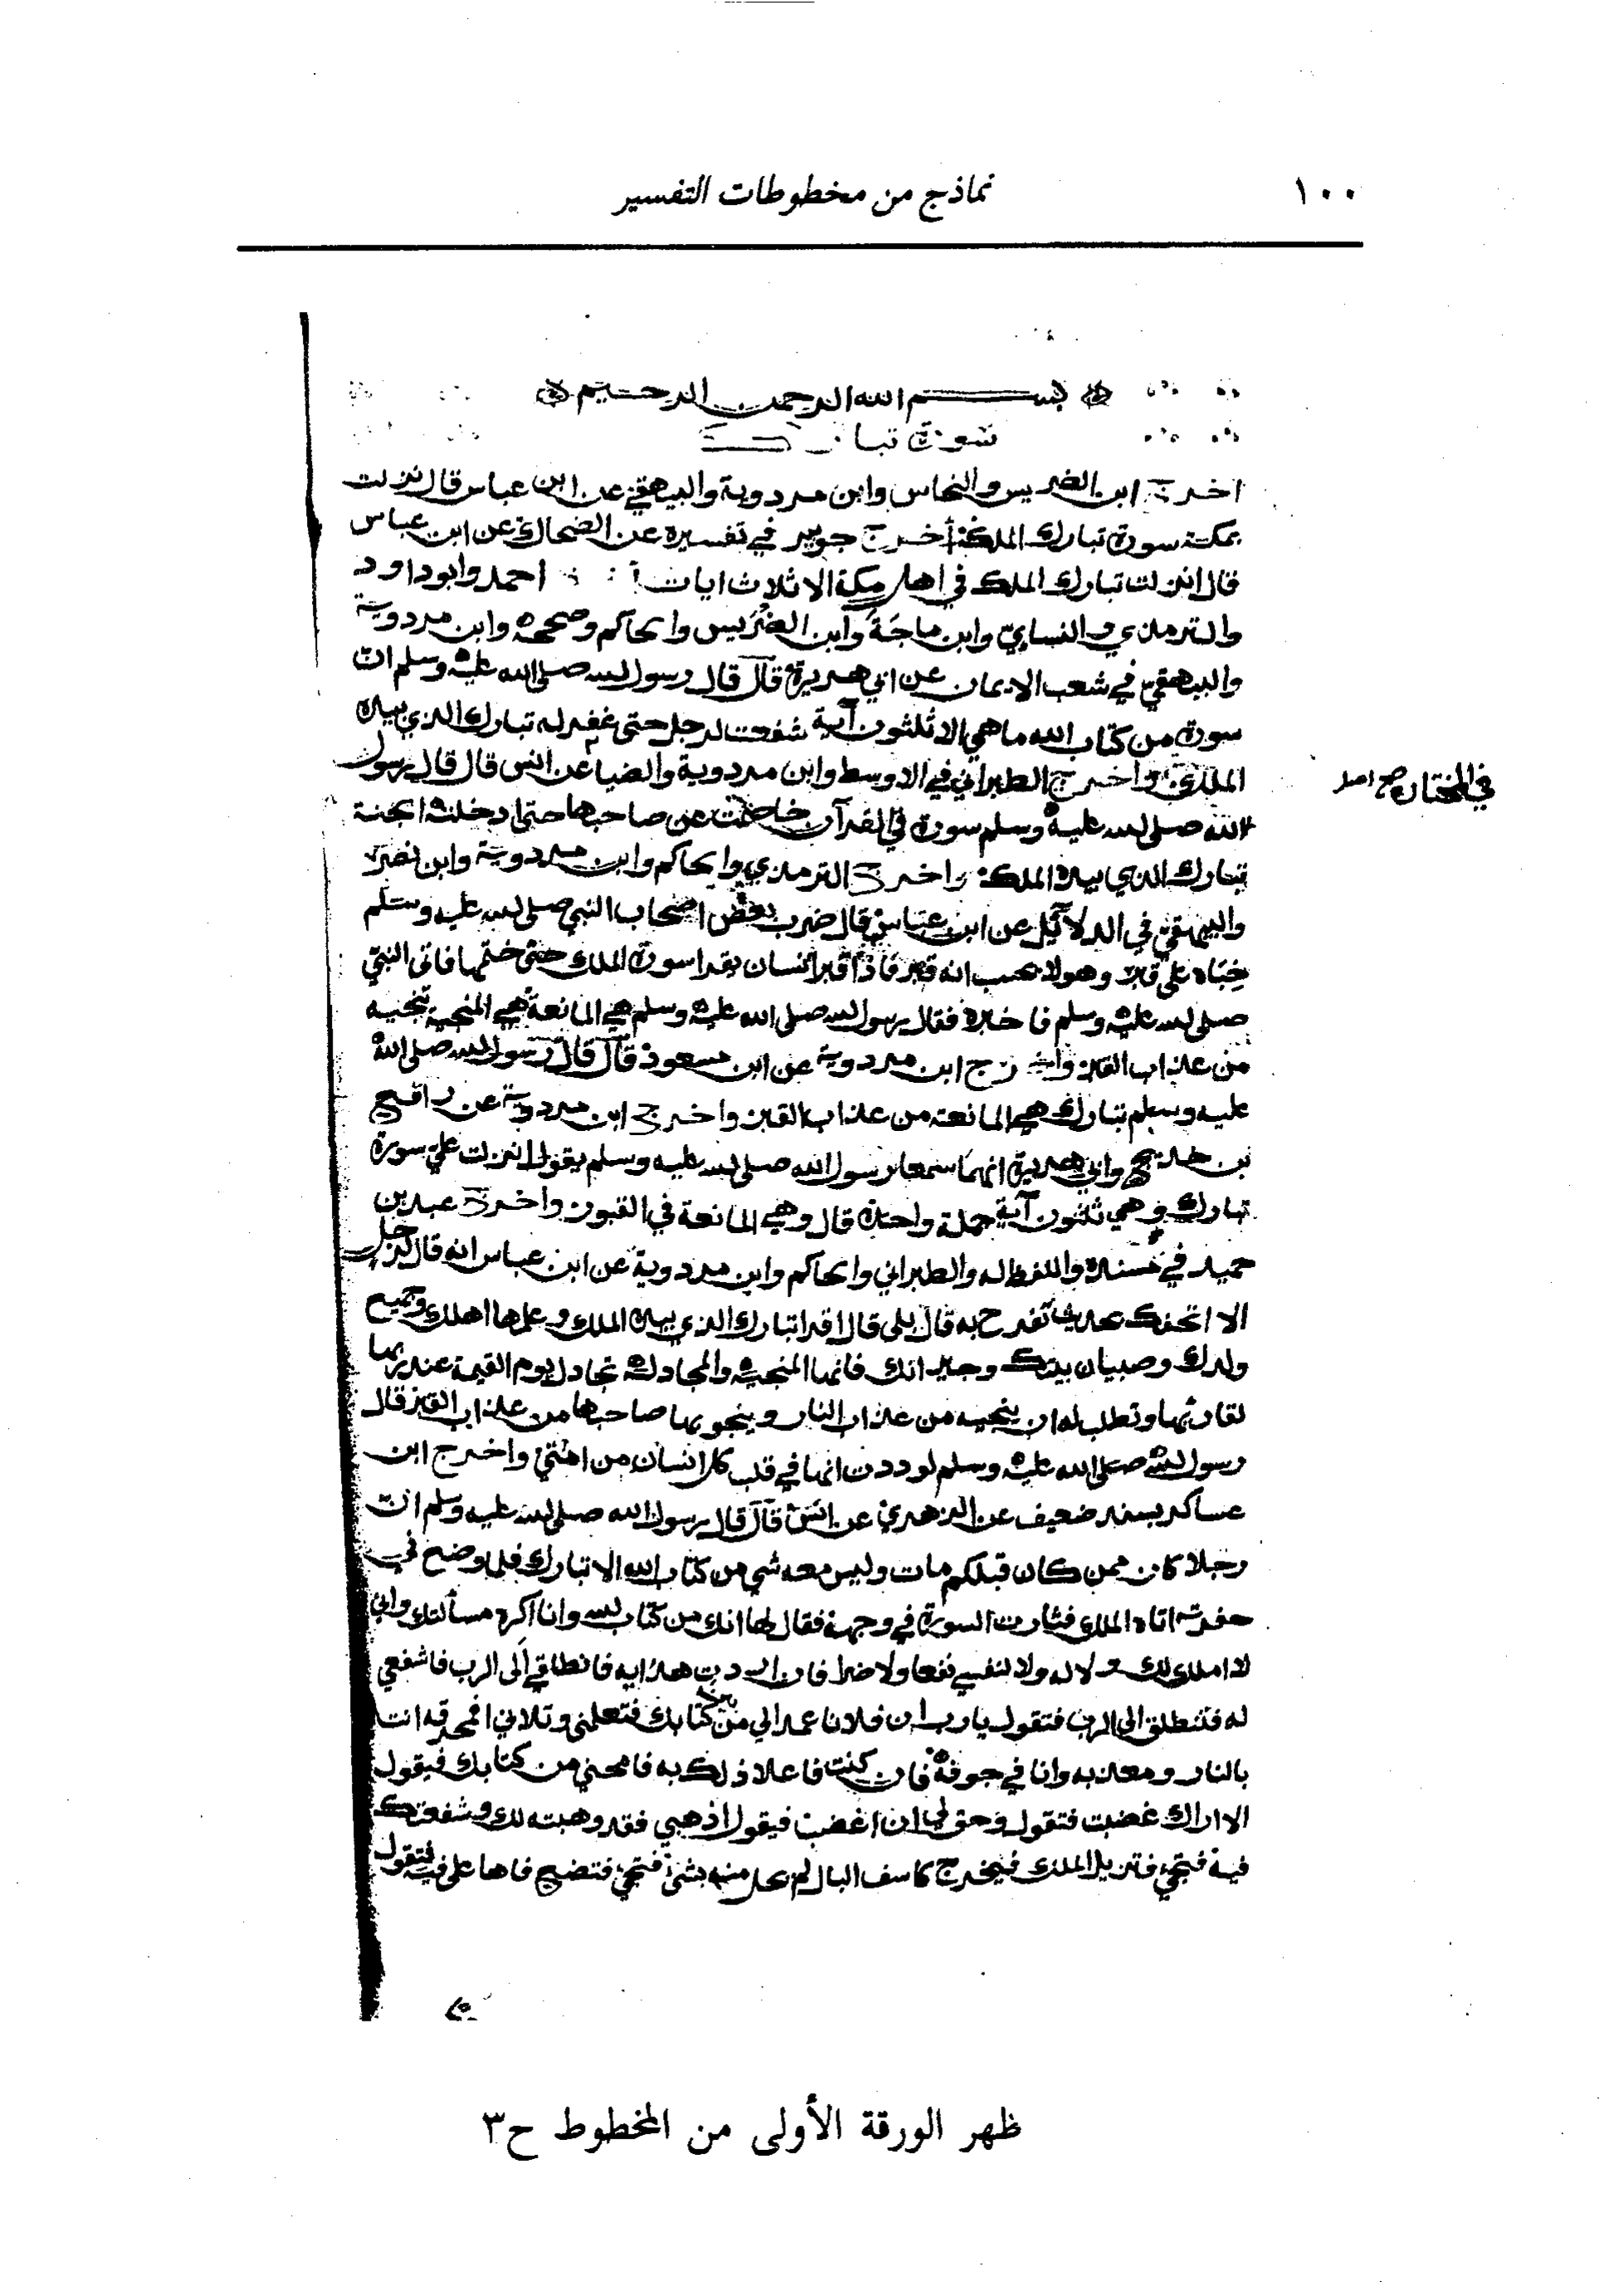 ١٠٠
نماذج من مخطوطات التفسير
بسم الله الرحمن الرحيم
سورة تبارك
اخرج ابن الضريس والنحاس وابن مردوية والبيهقي عن ابن عباس قال نزلت
بمكة سورة تبارك الملك أخرج جويبر في تفسيره عن الضحاك عن ابن عباس
قال انزلت تبارك الملك في اهل مكة الا ثلاث ايات احمد وابو داود
والترمذي والنساي وابن ماجة وابن الضريس والحاكم وصححه وابن مردوية
والبيهقي في شعب الايمان عن ابي هريرة قال قال رسول الله صلى الله عليه وسلم ان
سورة من كتاب الله ما هي الا ثلثون آية شفعت لرجل حتى غفر له تبارك الذي بيده
الملك واخرج الطبراني في الاوسط وابن مردوية والضيا عن انس قال قال رسول
في المختارة صح اصل
الله صلى الله عليه وسلم سورة في القرآن خاصمت عن صاحبها حتى ادخلته الجنة
تبارك الذي بيده الملك واخرج الترمذي والحاكم وابن مردوية وابن نصر
والبيهقي في الدلائل عن ابن عباس قال ضرب بعض اصحاب النبي صلى الله عليه وسلم
خباه على قبر وهو لا يحسب انه قبر فاذا قبر انسان يقرا سورة الملك حتى ختمها فاتى النبي
صلى الله عليه وسلم فاخبره فقال رسول الله صلى الله عليه وسلم هي المانعة هي المنجية تنجيه
من عذاب القبر واخرج ابن مردوية عن ابن مسعود قال قال رسول الله صلى الله
عليه وسلم تبارك هي المانعة من عذاب القبر واخرج ابن مردوية عن رافع
بن خديج وابي هريرة انهما سمعا رسول الله صلى الله عليه وسلم يقول انزلت علي سورة
تبارك وهي ثلثون آية جملة واحدة قال وهي المانعة في القبور واخرج عبد بن
حميد في مسنده واللفظ له والطبراني والحاكم وابن مردوية عن ابن عباس انه قال لرجل
الا اتحفك بحديث تفرح به قال بلى قال اقرا تبارك الذي بيده الملك وعلمها اهلك وجميع
ولدك وصبيان بيتك وجيرانك فانها المنجية والمجادلة تجادل يوم القيمة عند ربها
لقارئها وتطلب له ان ينجيه من عذاب النار وينجو بها صاحبها من عذاب القبر قال
رسول الله صلى الله عليه وسلم لوددت انها في قلب كل انسان من امتي واخرج ابن
عساكر بسند ضعيف عن الزهري عن انس قال قال رسول الله صلى الله عليه وسلم ان
رجلا كان ممن كان قبلكم مات وليس معه شي من كتاب الله الا تبارك فلما وضع في
حفرته اتاه الملك فثارت السورة في وجهه فقال لها انك من كتاب الله وانا اكره مسألتك واني
لا املك لك ولا له ولا لنفسي نفعا ولا ضرا فان اردت هذا به فانطلقي الى الرب فاشفعي
له فتنطلق الى الرب فتقول يا رب ان فلانا عمد الي من بين كتابك فتعلمني وتلاني افمحرقه انت
بالنار ومعذبه وانا في جوفه فان كنت فاعلا ذلك به فامحني من كتابك فيقول
الا اراك غضبت فتقول وحق لي ان اغضب فيقول اذهبي فقد وهبته لك وشفعتك
فيه فتجي فتزيل الملك فيخرج كاسف البال لم يحل منه بشئ فتجي فتضع فاها على فيه فتقول
ظهر الورقة الأولى من المخطوط ح٣